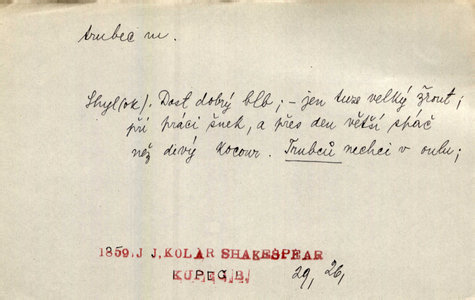 trubec m.
Shyl(ok). Dost dobrý blb; – jen tuze velký žrout;
při práci šnek, a přes den větší spáč
než divý kocour. Trubců nechci v oulu;
1859. J J. KOLAR SHAKESPEAR
KUPEC B.
29, 26,